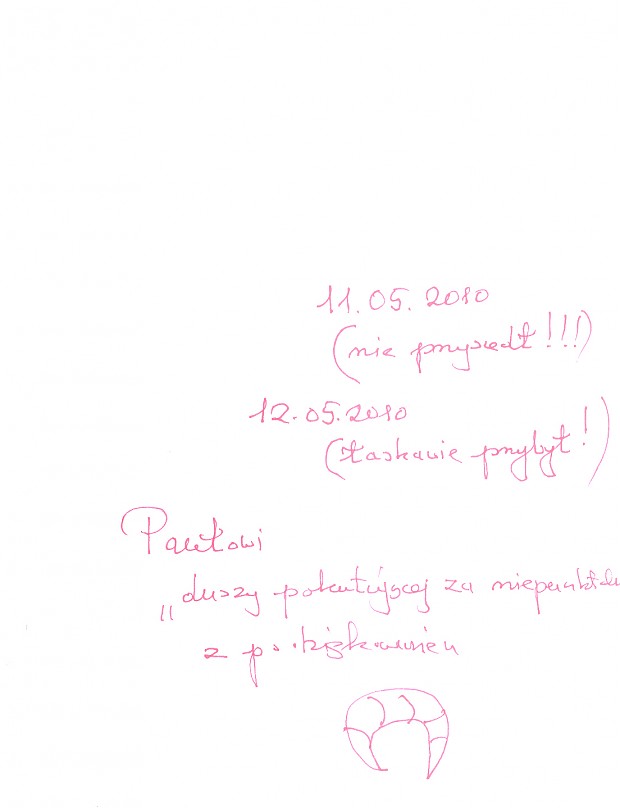 11.05.2010
(nie przyszedł!!!)
12.05.2010
(łaskawie przybył!)
Pawłowi
„duszy pokutującej za
z podziękowaniem